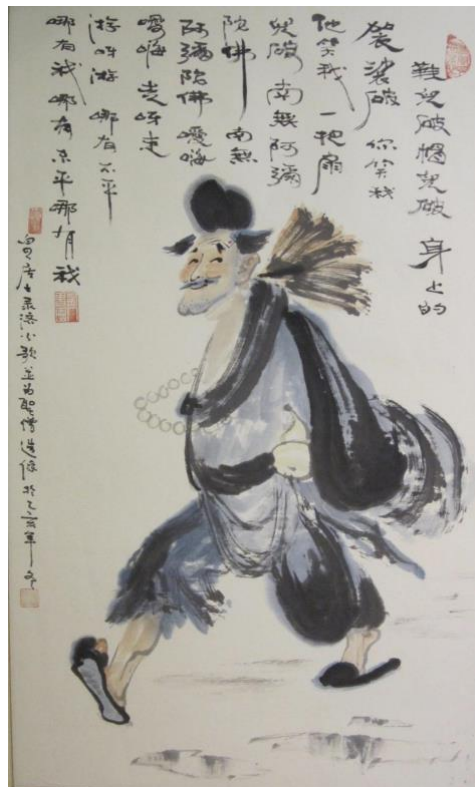 鞋兒破帽兒破 身上的
袈裟破 你笑我
他笑我 一把扇
兒破 南無阿彌
陀佛 南無
阿彌陀佛 噯嗨
噯嗨 走呀走
游呀游 哪有不平
哪有我 哪有不平哪有我
居士录济公歌並為聖僧造像於乙亥年冬